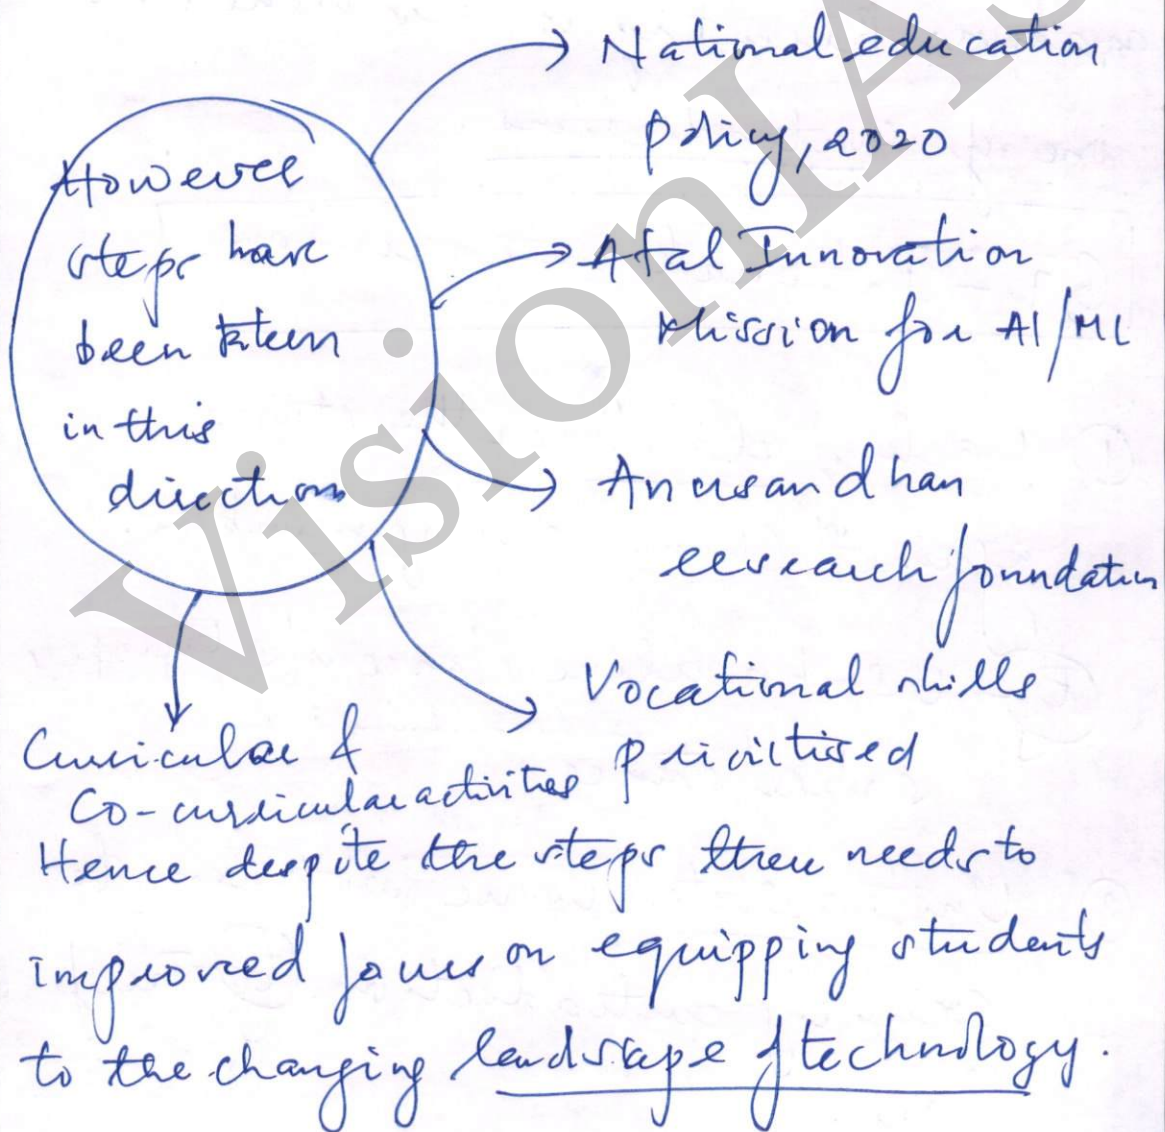 However
steps have
been taken
in this
direction
National education
policy, 2020
Atal Innovation
Mission for AI/ML
Anusandhan
research foundation
Vocational skills
prioritised
Curricular &
Co-curricular activities
Hence despite the steps there needs to
improved focus on equipping students
to the changing landscape of technology.
VisionIAS